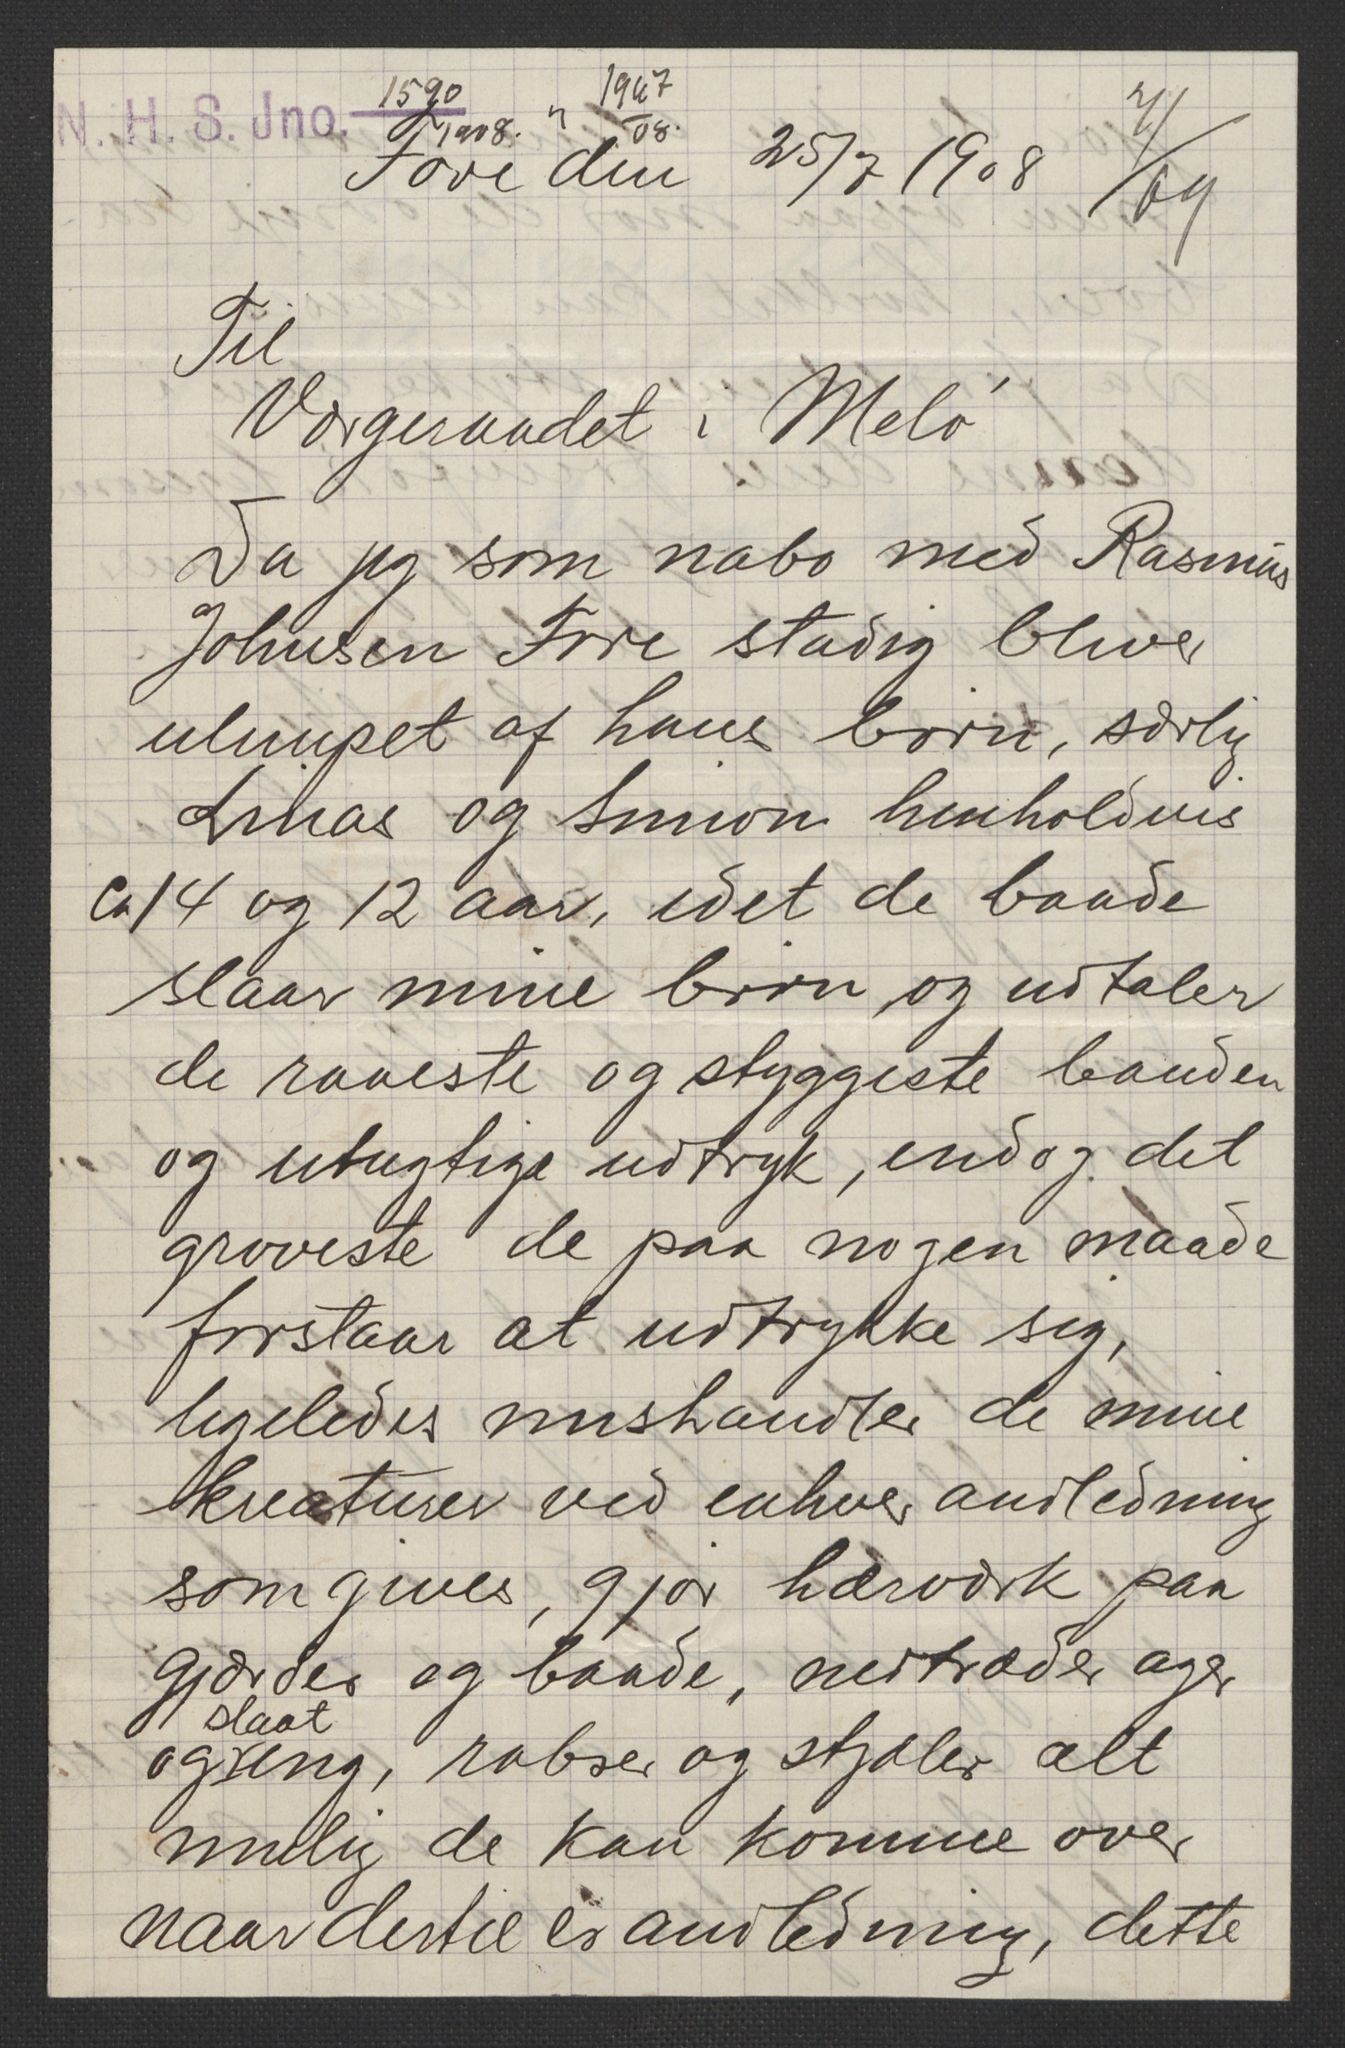 N. H. S. Jno. 1590/1908. " 1947/08.
Fore den 25/7 1908
Til
Værgeraadet i Melø
Da jeg som nabo med Rasmus
Johnsen Fore stadig bliver
ulempet af hans børn, særlig
Linas og Simon henholdsvis
Ca 14 og 12 aar, idet de baade
slaar mine børn og udtaler
de raaeste og styggeste banden
og utugtige udtryk, endog det
groveste de paa nogen maade
forstaar at udtrykke sig,
ligeledes mishandler de mine
kreaturer ved enhver andledning
som gives, gjør hærværk paa
gjærder og baade, nedtræder ager
og slaat eng, rapser og stjæler alt
mulig de kan komme over
naar dertil er andledning, dette